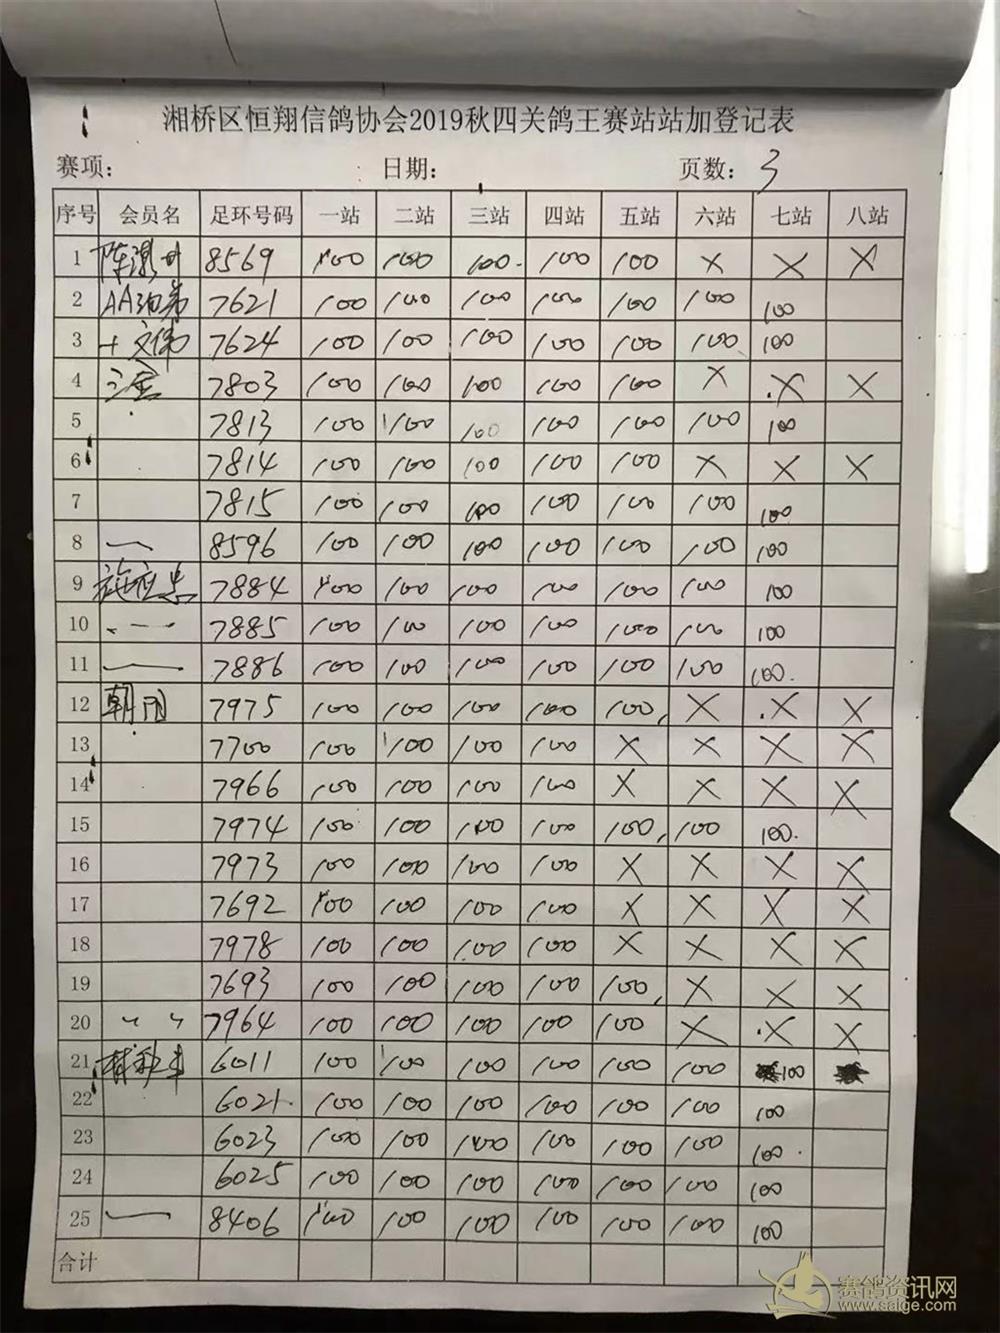 湘桥区恒翔信鸽协会2019秋四关鸽王赛站站加登记表
赛项： 日期： 页数：3
序号 会员名 足环号码 一站 二站 三站 四站 五站 六站 七站 八站
1 8569 100 100 100 100 100 X X X
2 7621 100 100 100 100 100 100 100
3 7624 100 100 100 100 100 100 100
4 7803 100 100 100 100 100 X X X
5 7813 100 100 100 100 100 100 100
6 7814 100 100 100 100 100 X X X
7 7815 100 100 100 100 100 100 100
8 8596 100 100 100 100 100 100 100
9 施应忠 7884 100 100 100 100 100 100 100
10 7885 100 100 100 100 100 100 100
11 7886 100 100 100 100 100 100 100
12 朝阳 7975 100 100 100 100 100 X X X
13 7700 100 100 100 100 X X X X
14 7966 100 100 100 100 X X X X
15 7974 100 100 100 100 100 100 100
16 7973 100 100 100 100 X X X X
17 7692 100 100 100 100 X X X X
18 7978 100 100 100 100 X X X X
19 7693 100 100 100 100 100 X X X
20 7964 100 100 100 100 100 X X X
21 6011 100 100 100 100 100 100 100
22 6021 100 100 100 100 100 100 100
23 6023 100 100 100 100 100 100 100
24 6025 100 100 100 100 100 100 100
25 8406 100 100 100 100 100 100 100
合计
赛鸽资讯网
www.saige.com